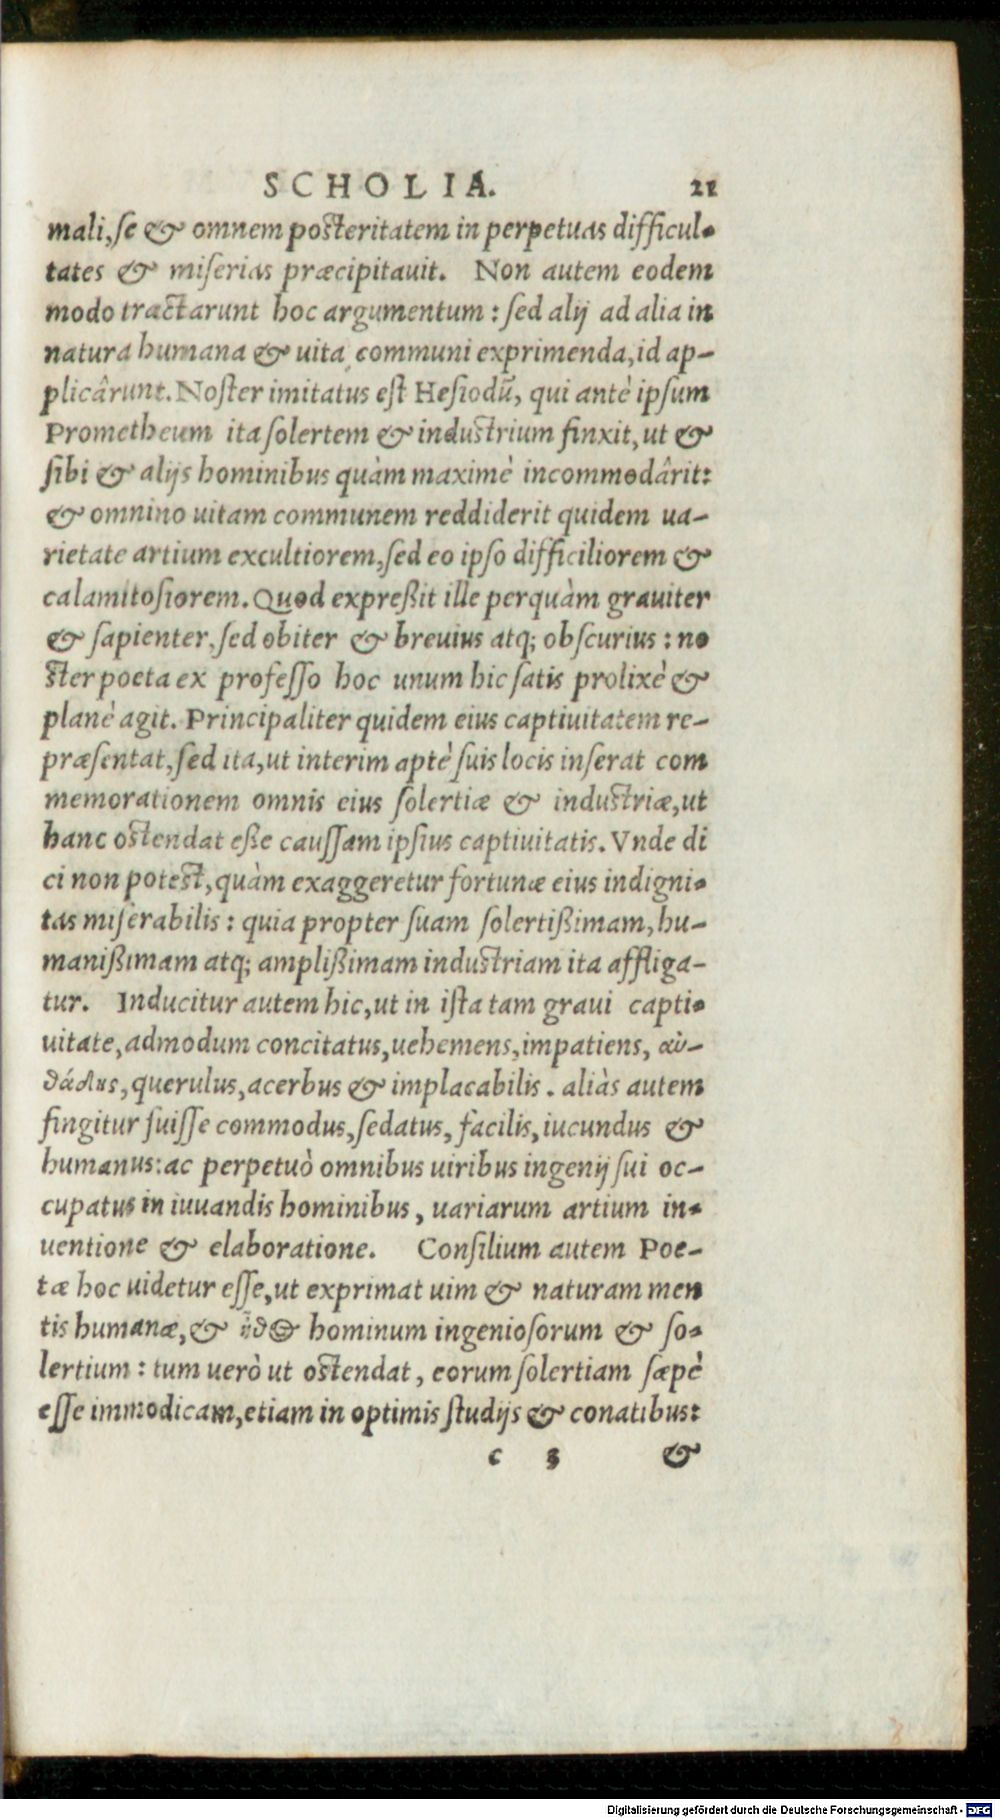 SCHOLIA. 21
mali, se & omnem posteritatem in perpetuas difficul-
tates & miserias præcipitauit. Non autem eodem
modo tractarunt hoc argumentum: sed alij ad alia in
natura humana & uita communi exprimenda, id ap-
plicârunt. Noster imitatus est Hesiodū, qui antè ipsum
Prometheum ita solertem & industrium finxit, ut &
sibi & alijs hominibus quàm maximè incommodârit:
& omnino uitam communem reddiderit quidem ua-
rietate artium excultiorem, sed eo ipso difficiliorem &
calamitosiorem. Quod expreßit ille perquàm grauiter
& sapienter, sed obiter & breuius atq; obscurius: no
ster poeta ex professo hoc unum hic satis prolixè &
planè agit. Principaliter quidem eius captiuitatem re-
præsentat, sed ita, ut interim aptè suis locis inserat com
memorationem omnis eius solertiæ & industriæ, ut
hanc ostendat eße caussam ipsius captiuitatis. Vnde di
ci non potest, quàm exaggeretur fortunæ eius indigni-
tas miserabilis: quia propter suam solertißimam, hu-
manißimam atq; amplißimam industriam ita affliga-
tur. Inducitur autem hic, ut in ista tam graui capti-
uitate, admodum concitatus, uehemens, impatiens, αὐ-
θάδης, querulus, acerbus & implacabilis. aliàs autem
fingitur fuisse commodus, sedatus, facilis, iucundus &
humanus: ac perpetuò omnibus uiribus ingenij sui oc-
cupatus in iuuandis hominibus, uariarum artium in-
uentione & elaboratione. Consilium autem Poe-
tæ hoc uidetur esse, ut exprimat uim & naturam men
tis humanæ, & ἦθος hominum ingeniosorum & so-
lertium: tum uerò ut ostendat, eorum solertiam sæpè
esse immodicam, etiam in optimis studijs & conatibus:
c 3 &
Digitalisierung gefördert durch die Deutsche Forschungsgemeinschaft - DFG